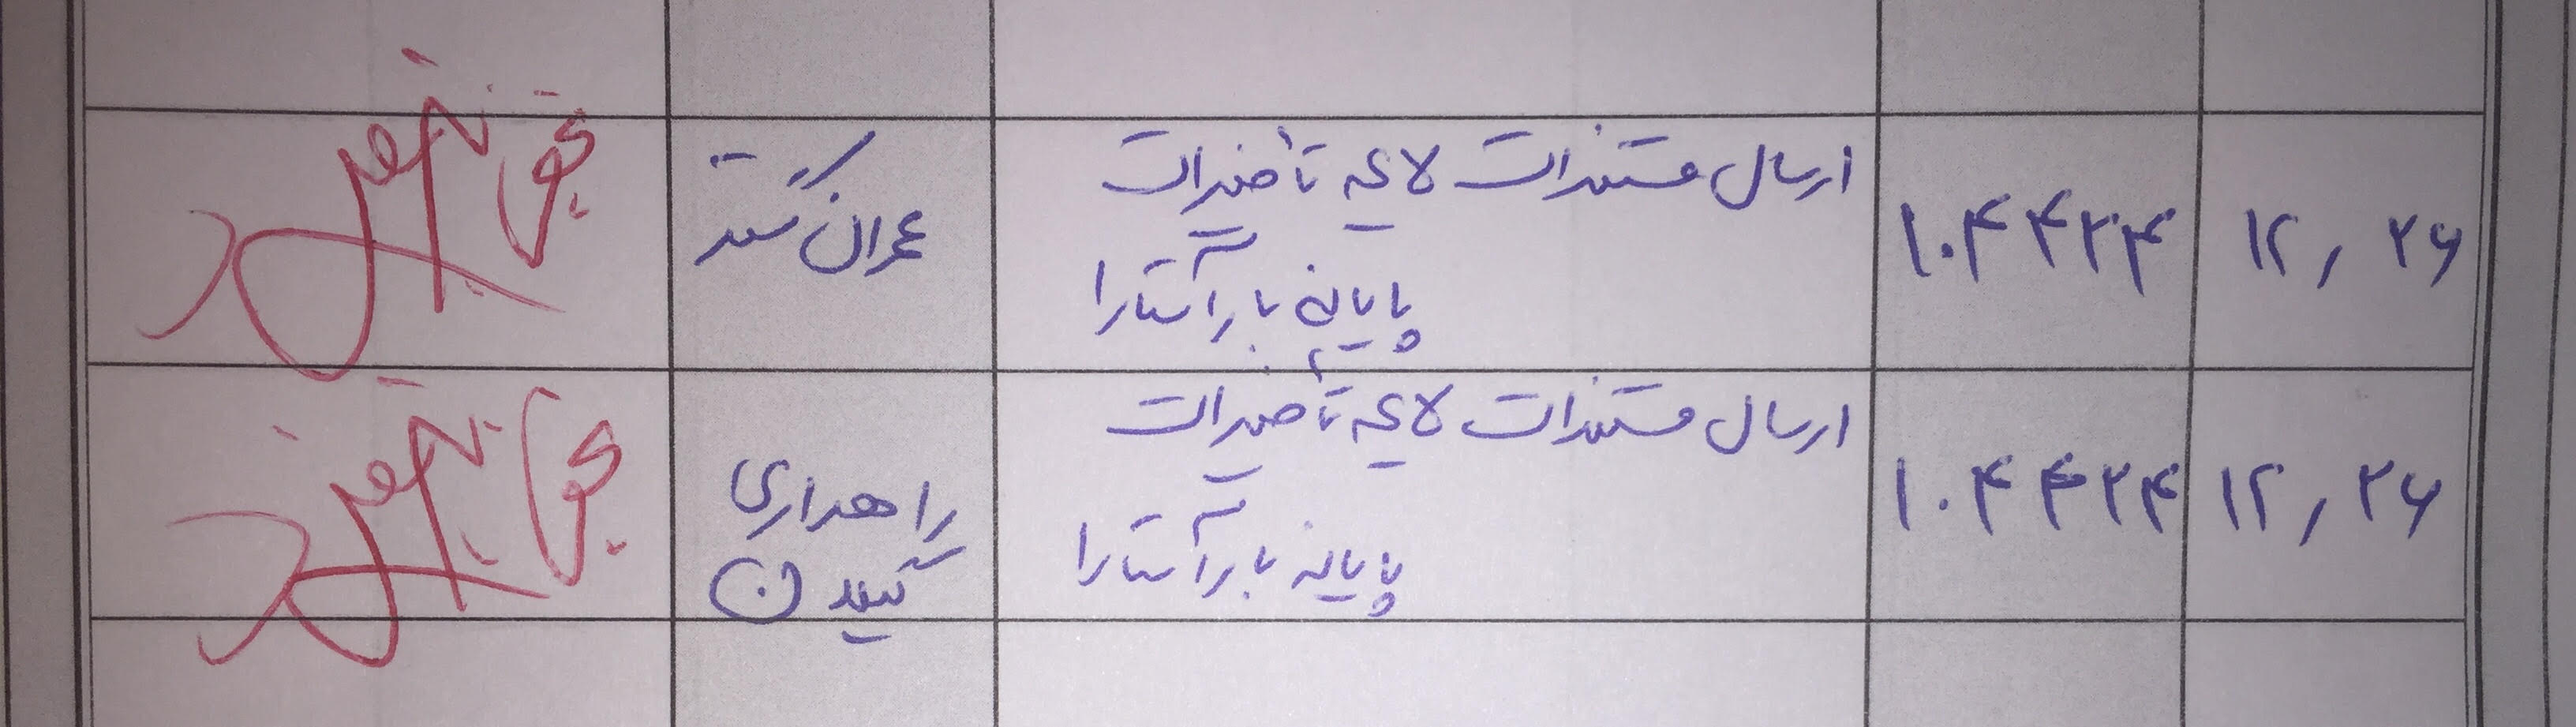 ۱۲٫۲۶
۱۰۴۴۳۴
ارسال مستندات لایحه تأخیرات
پایانه بار آستارا
عمران گستر
۱۲٫۲۶
۱۰۴۴۳۴
ارسال مستندات لایحه تأخیرات
پایانه بار آستارا
راهداری
گیلان